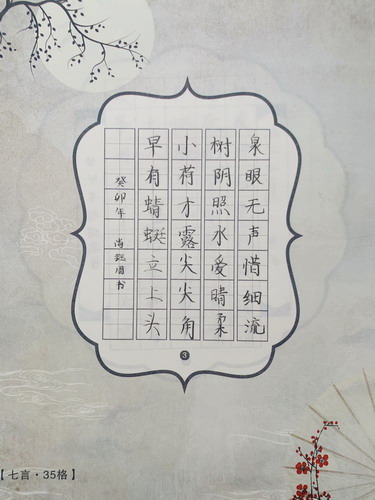 泉眼无声惜细流
树阴照水爱晴柔
小荷才露尖尖角
早有蜻蜓立上头
癸卯年
书
3
【七言·35格】